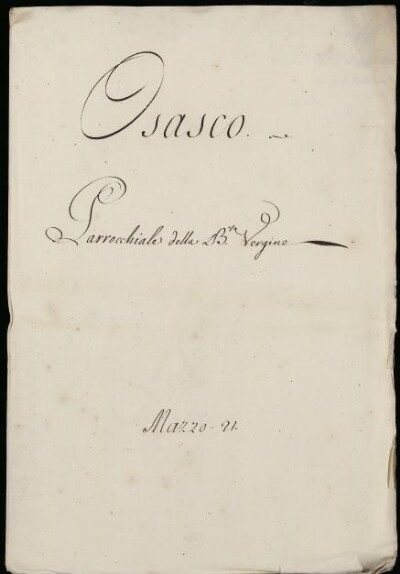 Osasco.
Parrocchiale della B.ta Vergine
Mazzo. 21.